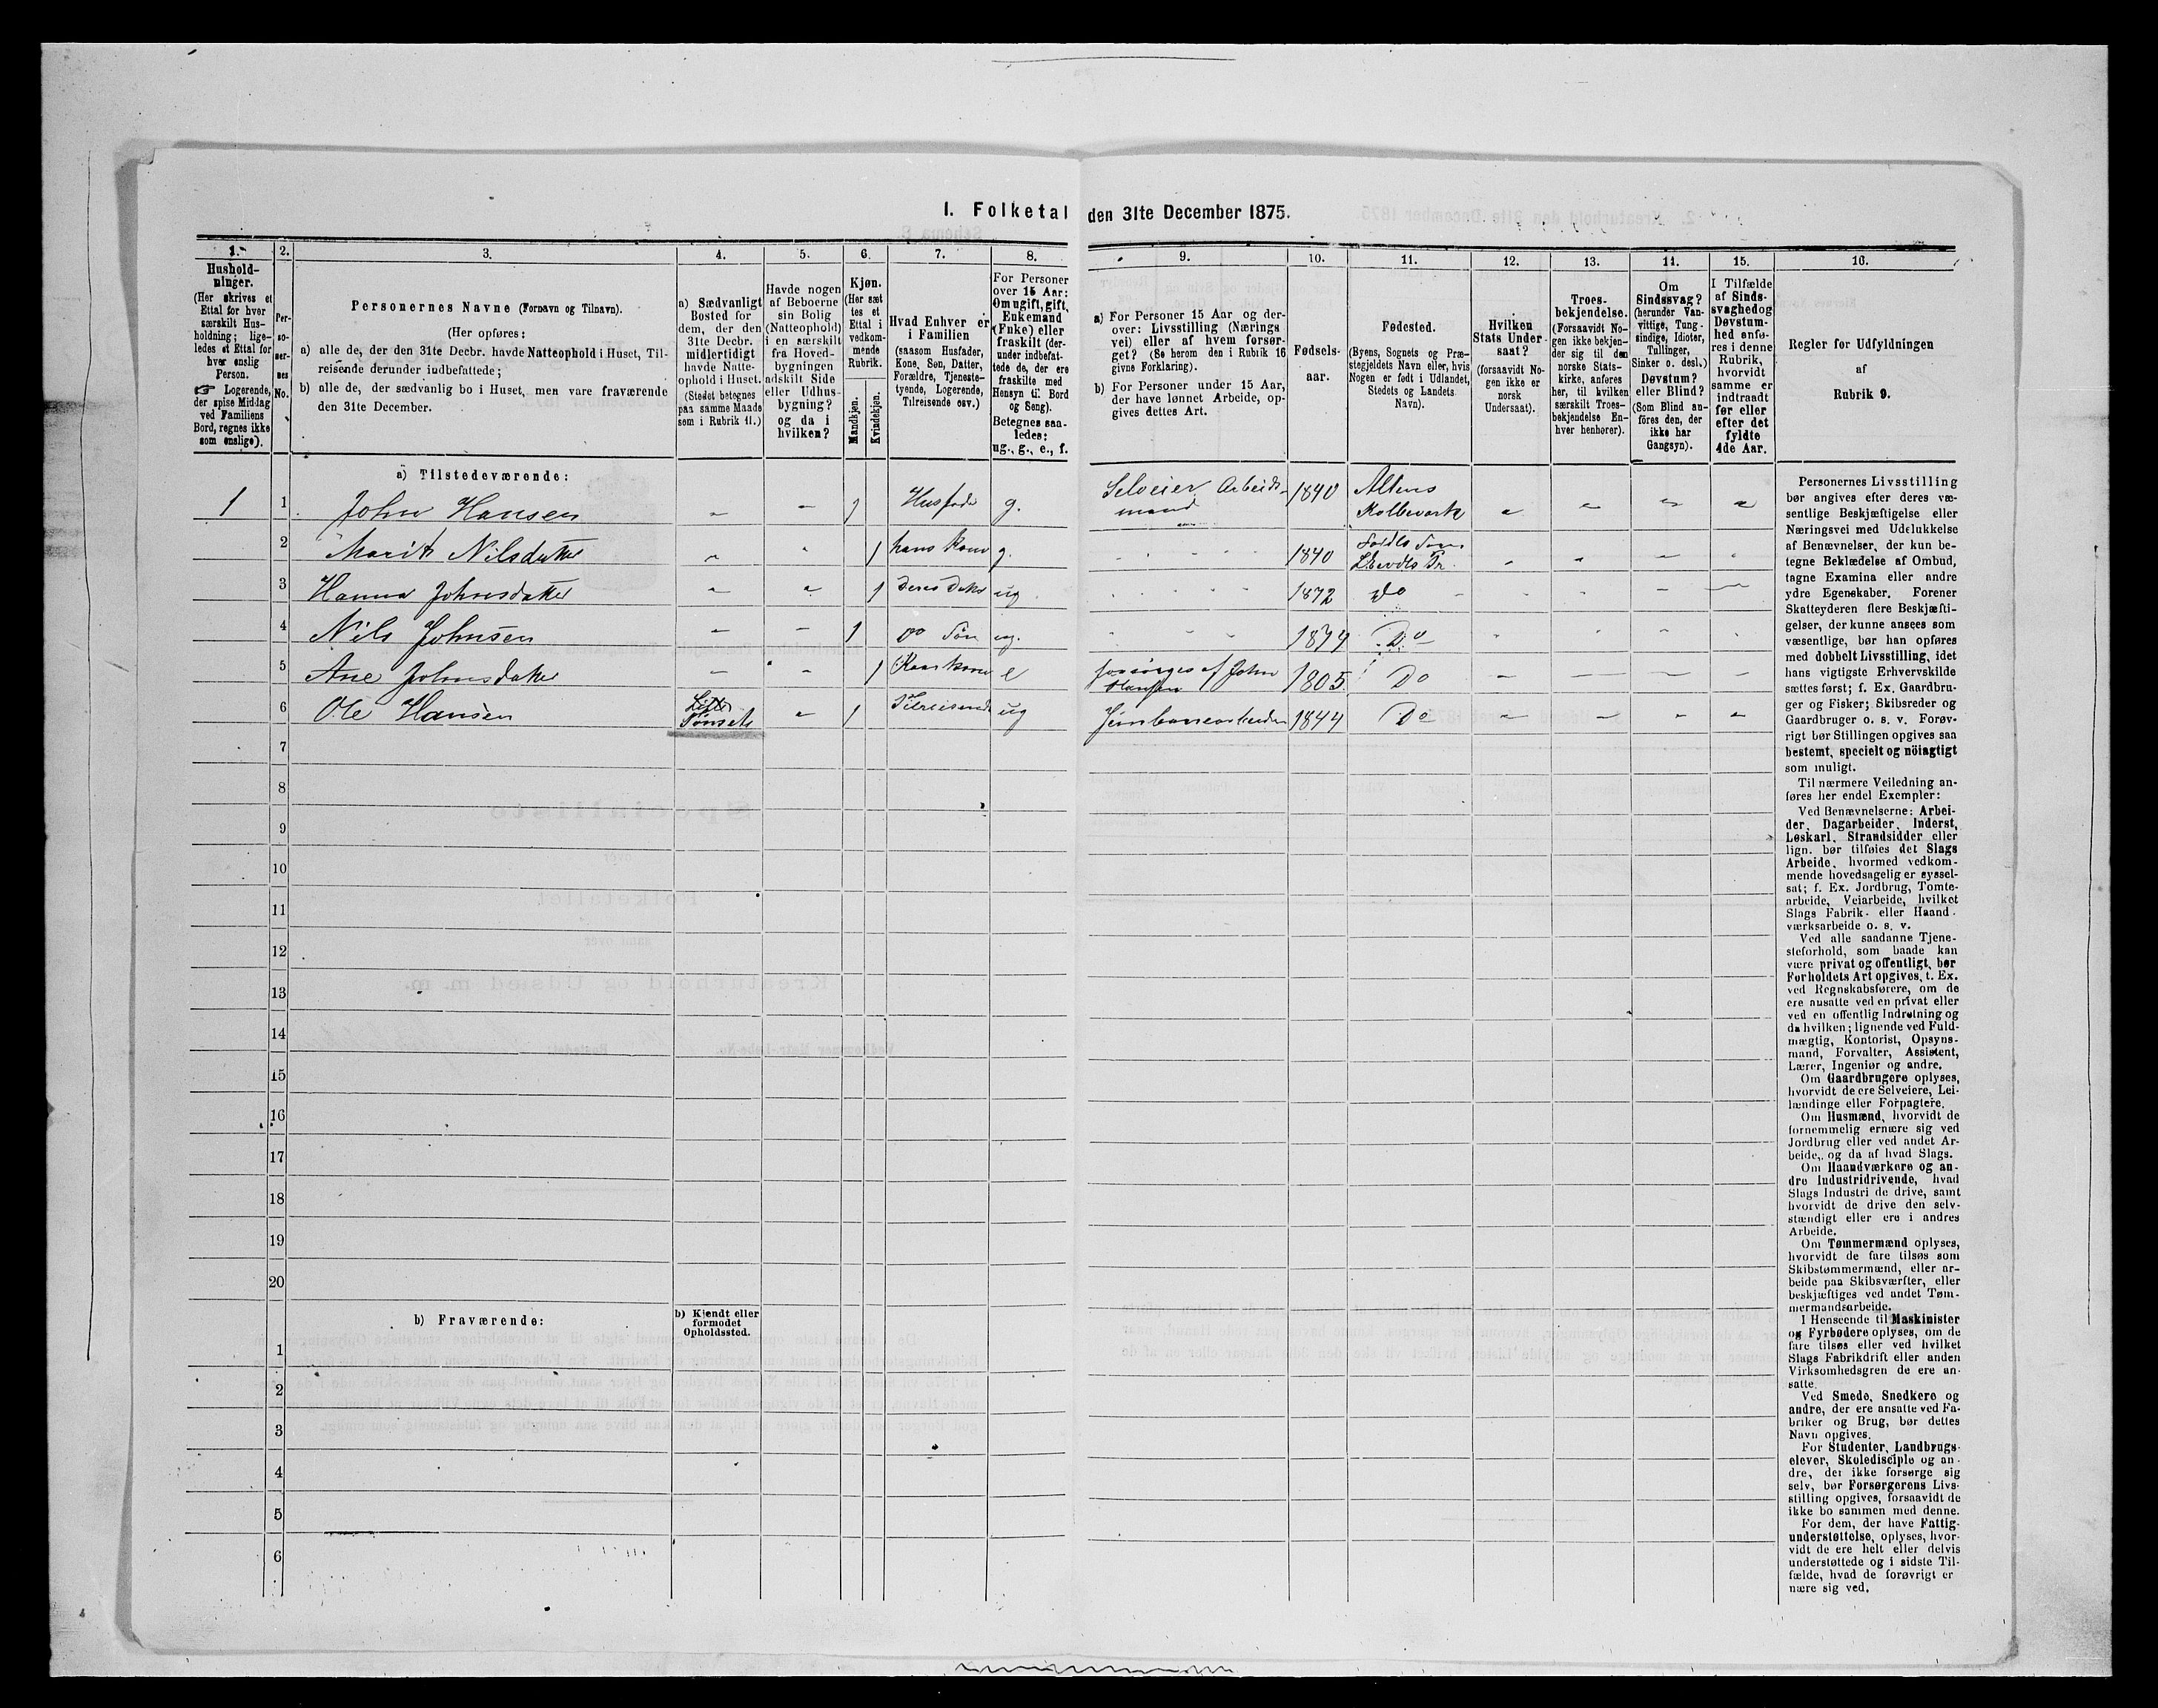 1. Folketal den 31te December 1875.
1.
Hushold-
ninger.
(Her skrives et
Ettal for hver
særskilt Hus-
holdning; lige-
ledes et Ettal for
hver enslig
Person.
☞ Logerende,
der spise Middag
ved Familiens
Bord, regnes ikke
som enslige).
2.
Per-
so-
ner-
nes
No.
3.
Personernes Navne (Fornavn og Tilnavn).
(Her opføres:
a) alle de, der den 31te Decbr. havde Natteophold i Huset, Til-
reisende derunder indbefattede;
b) alle de, der sædvanlig bo i Huset, men vare fraværende
den 31te December.
4.
a) Sædvanligt
Bosted for
dem, der den
31te Decbr.
midlertidigt
havde Natte-
ophold i Huset.
(Stedet betegnes
paa samme Maade
som i Rubrik 11.)
5.
Havde nogen
af Beboerne
sin Bolig
(Natteophold)
i en særskilt
fra Hoved-
bygningen
adskilt Side
eller Udhus-
bygning?
og da i
hvilken?
6.
Kjøn.
(Her sæt
tes et
Ettal i
vedkom-
mende
Rubrik.
Mandkjøn.
Kvindekjøn.
7.
Hvad Enhver er
i Familien
(saasom Husfader,
Kone, Søn, Datter,
Forældre, Tjeneste-
tyende, Logerende,
Tilreisende osv.)
8.
For Personer
over 15 Aar:
Om ugift, gift,
Enkemand
(Enke) eller
fraskilt (der-
under indbefat-
tede de, der ere
fraskilte med
Hensyn til Bord
og Seng).
Betegnes saa-
ledes:
ug., g., e., f.
9.
a) For Personer 15 Aar og der-
over: Livsstilling (Nærings
vei) eller af hvem forsør-
get? (Se herom den i Rubrik 16
givne Forklaring).
b) For Personer under 15 Aar,
der have lønnet Arbeide, op-
gives dettes Art.
10.
Fødsels-
aar.
11.
Fødested.
(Byens, Sognets og Præ-
stegjeldets Navn eller, hvis
Nogen er født i Udlandet,
Stedets og Landets
Navn).
12.
Hvilken
Stats Under
saat?
(forsaavidt No-
gen ikke er
norsk
Undersaat).
13.
Troes-
bekjendelse.
(Forsaavidt No-
gen ikke bekjen-
der sig til den
norske Stats-
kirke, anføres
her, til hvilken
særskilt Troes-
bekjendelse En-
hver henhører).
14.
Om
Sindssvag?
(herunder Van-
vittige, Tung-
sindige, Idioter,
Tullinger,
Sinker o. desl.)
Døvstum?
eller Blind?
(Som Blind an-
føres den, der
ikke har
Gangsyn).
15.
I Tilfælde
af Sinds-
svaghed og
Døvstum-
hed anfø-
res i denne
Rubrik,
hvorvidt
samme er
indtraadt
før eller
efter det
fyldte
4de Aar.
16.
Regler for Udfyldningen
af
Rubrik 9.
a) Tilstedeværende:
1 1 John Hansen - - 1 Husfader g. Selveier Arbeids-
mand 1840 Altens
Kobberverk
2 Marit Nilsdatter 1 hans Kone g. 1840
3 Hanna Johnsdatter 1 deres Datter ug 1872 Do
4 Nils Johnsen 1 Do Søn ug. 1874 Do
5 Ane Johnsdatter 1 Kaarkone e forsørges af John
Hansen 1805 Do
6 Ole Hansen Tønset 1 Tilreisende ug Jernbanearbeider 1844 Do
7
8
9
10
11
12
13
14
15
16
17
18
19
20
b) Fraværende:
b) Kjendt eller
formodet
Opholdssted.
1
2
3
4
5
6
Personernes Livsstilling
bør angives efter deres væ-
sentlige Beskjæftigelse eller
Næringsvei med Udelukkelse
af Benævnelser, der kun be-
tegne Beklædelse af Ombud,
tagne Examina eller andre
ydre Egenskaber. Forener
Skatteyderen flere Beskjæfti-
gelser, der kunne ansees som
væsentlige, bør han opføres
med dobbelt Livsstilling, idet
hans vigtigste Erhvervskilde
sættes først; f. Ex. Gaardbru-
ger og Fisker; Skibsreder og
Gaardbruger o. s. v. Forøv-
rigt bør Stillingen opgives saa
bestemt, specielt og nöiagtigt
som muligt.
Til nærmere Veiledning an-
føres her endel Exempler:
Ved Benævnelserne: Arbei-
der, Dagarbeider, Inderst,
Løskarl, Strandsidder eller
lign. bør tilføies det Slags
Arbeide, hvormed vedkom-
mende hovedsagelig er syssel-
sat; f. Ex. Jordbrug, Tomte-
arbeide, Veiarbeide, hvilket
Slags Fabrik- eller Haand-
værksarbeide o. s. v.
Ved alle saadanne Tjene-
steforhold, som baade kan
være privat og offentligt, bør
Forholdets Art opgives, t. Ex.
ved Regnskabsførere, om de
ere ansatte ved en privat eller
ved en offentlig Indretning og
da hvilken; lignende ved Fuld-
mægtig, Kontorist, Opsyns-
mand, Forvalter, Assistent,
Lærer, Ingeniør og andre.
Om Gaardbrugere oplyses,
hvorvidt de ere Selveiere, Lei-
lændinge eller Forpagtere.
Om Husmænd, hvorvidt de
fornemmelig ernære sig ved
Jordbrug eller ved andet Ar-
beide, og da af hvad Slags.
Om Haandværkere og an-
dre Industridrivende, hvad
Slags Industri de drive, samt
hvorvidt de drive den selv-
stændigt eller ere i andres
Arbeide.
Om Tømmermænd oplyses,
hvorvidt de fare tilsøs som
Skibstømmermænd, eller ar-
beide paa Skibsværfter, eller
beskjæftiges ved andet Tøm-
mermandsarbeide.
I Henseende til Maskinister
og Fyrbødere oplyses, om de
fare tilsøs eller ved hvilket
Slags Fabrikdrift eller anden
Virksomhedsgren de ere an-
satte.
Ved Smede, Snedkere og
andre, der ere ansatte ved Fa-
briker og Brug, bør dettes
Navn opgives.
For Studenter, Landbrugs-
elever, Skoledisciple og an-
dre, der ikke forsørge sig
selv, bør Forsørgerens Livs-
stilling opgives, forsaavidt de
ikke bo sammen med denne.
For dem, der have Fattig-
understøttelse, oplyses, hvor-
vidt de ere helt eller delvis
understøttede og i sidste Til-
fælde, hvad de forøvrigt er
nære sig ved.